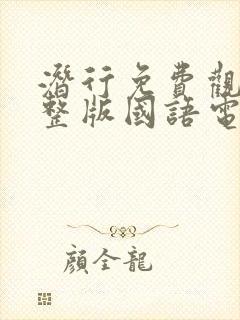 潛行免費觀
整版國語電
顏全龍